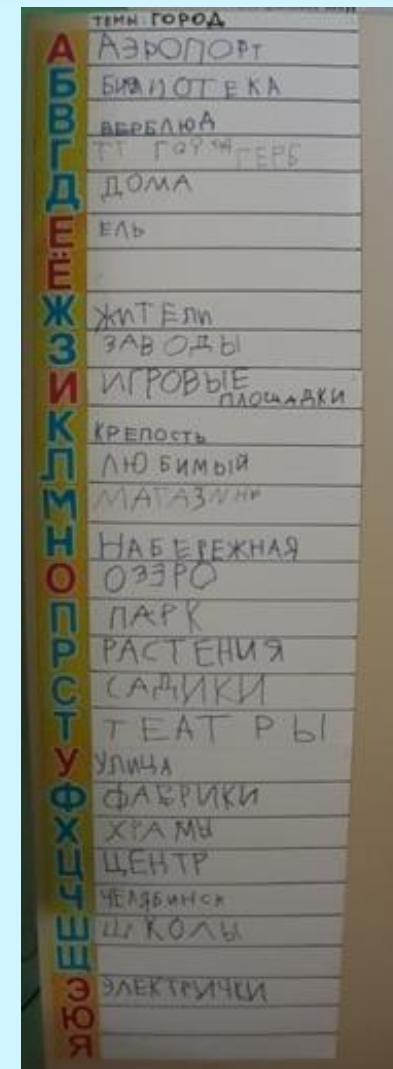 ТЕМЫ: ГОРОД
А АЭРОПОРТ
Б БИБЛИОТЕКА
В ВЕРБЛЮД
Г ГОРОД ГЕРБ
Д ДОМА
Е ЕЛЬ
Ё
Ж ЖИТЕЛИ
З ЗАВОДЫ
И ИГРОВЫЕ
ПЛОЩАДКИ
К КРЕПОСТЬ
Л ЛЮБИМЫЙ
М МАГАЗИНЫ
Н НАБЕРЕЖНАЯ
О ОЗЭРО
П ПАРК
Р РАСТЕНИЯ
С САДИКИ
Т ТЕАТРЫ
У УЛИЦА
Ф ФАБРИКИ
Х ХРАМЫ
Ц ЦЕНТР
Ч ЧЕЛЯБИНСК
Ш ШКОЛЫ
Щ
Э ЭЛЕКТРИЧКИ
Ю
Я